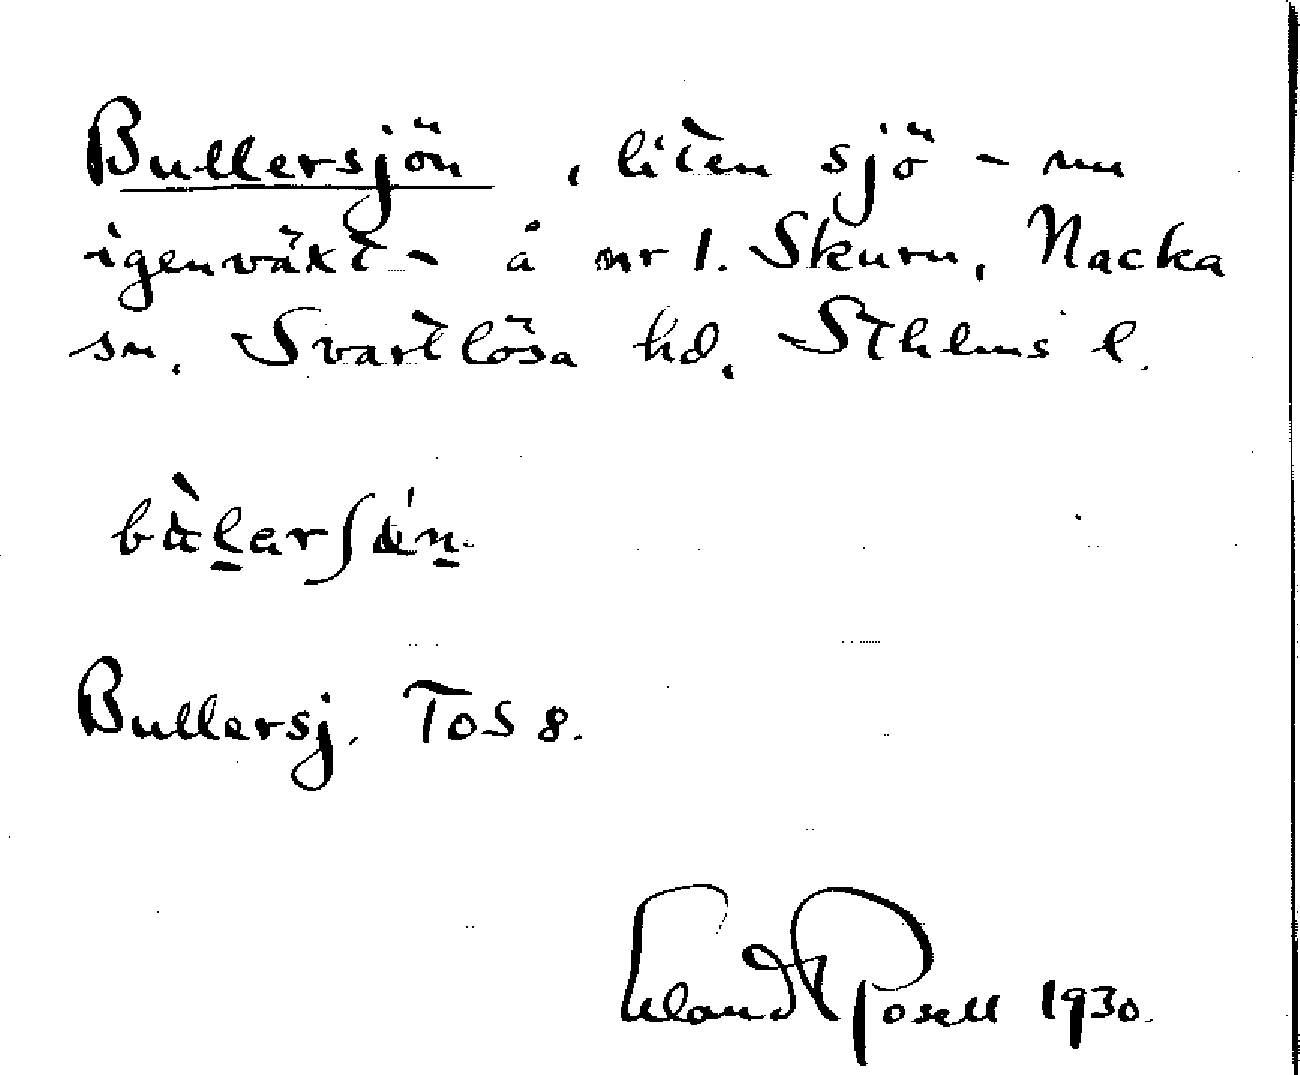 Bullersjön, liten sjö - nu
igenväxt - å nr 1. Skuru, Nacka
sn. Svartlösa hd. Sthlms l.
Bullersj. TOS 8.
Erland Rosell 1930.